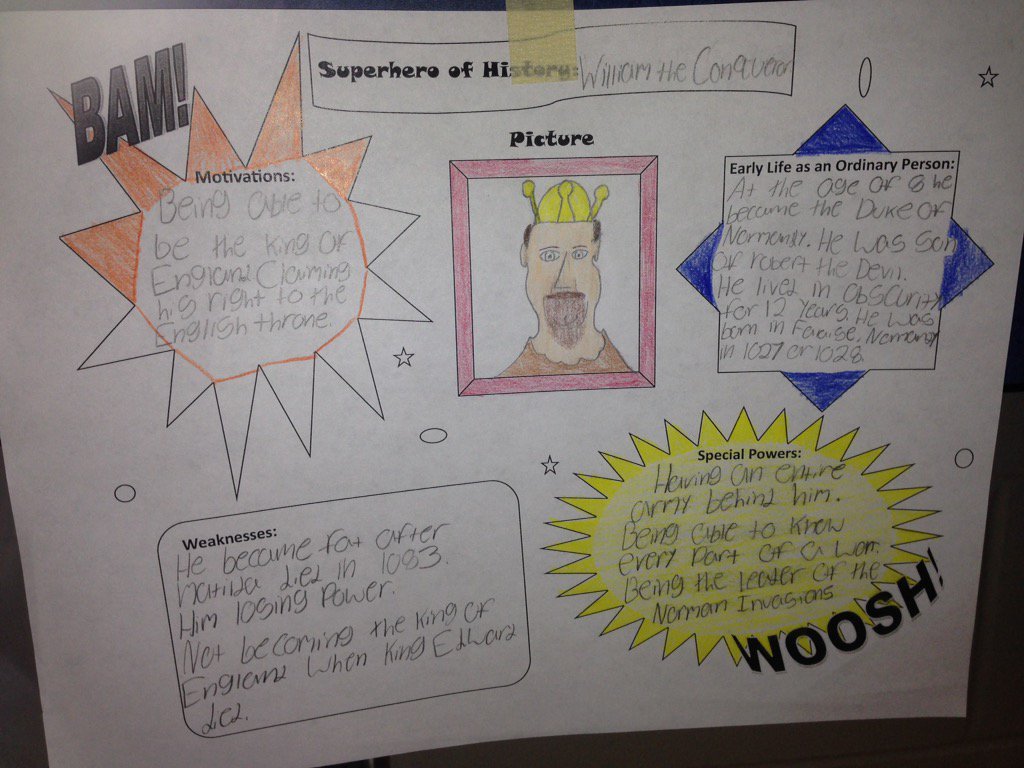 BAM!
Superhero of History: William the Conqueror
Picture
Motivations:
Being able to
be the king of
England Claiming
his right to the
English throne.
Early Life as an Ordinary Person:
At the age of 8 he
became the Duke of
Normandy. He was son
of robert the Devil.
He lived in obscurity
for 12 years. He was
born in Falaise, Normandy
in 1027 or 1028
Special Powers:
Having an entire
army behind him.
Being able to know
every part of a war.
Being the leader of the
Norman Invasions
WOOSH!
Weaknesses:
He became fat after
matilda died in 1083.
Him losing Power.
Not becoming the King of
England when King Edward
died.